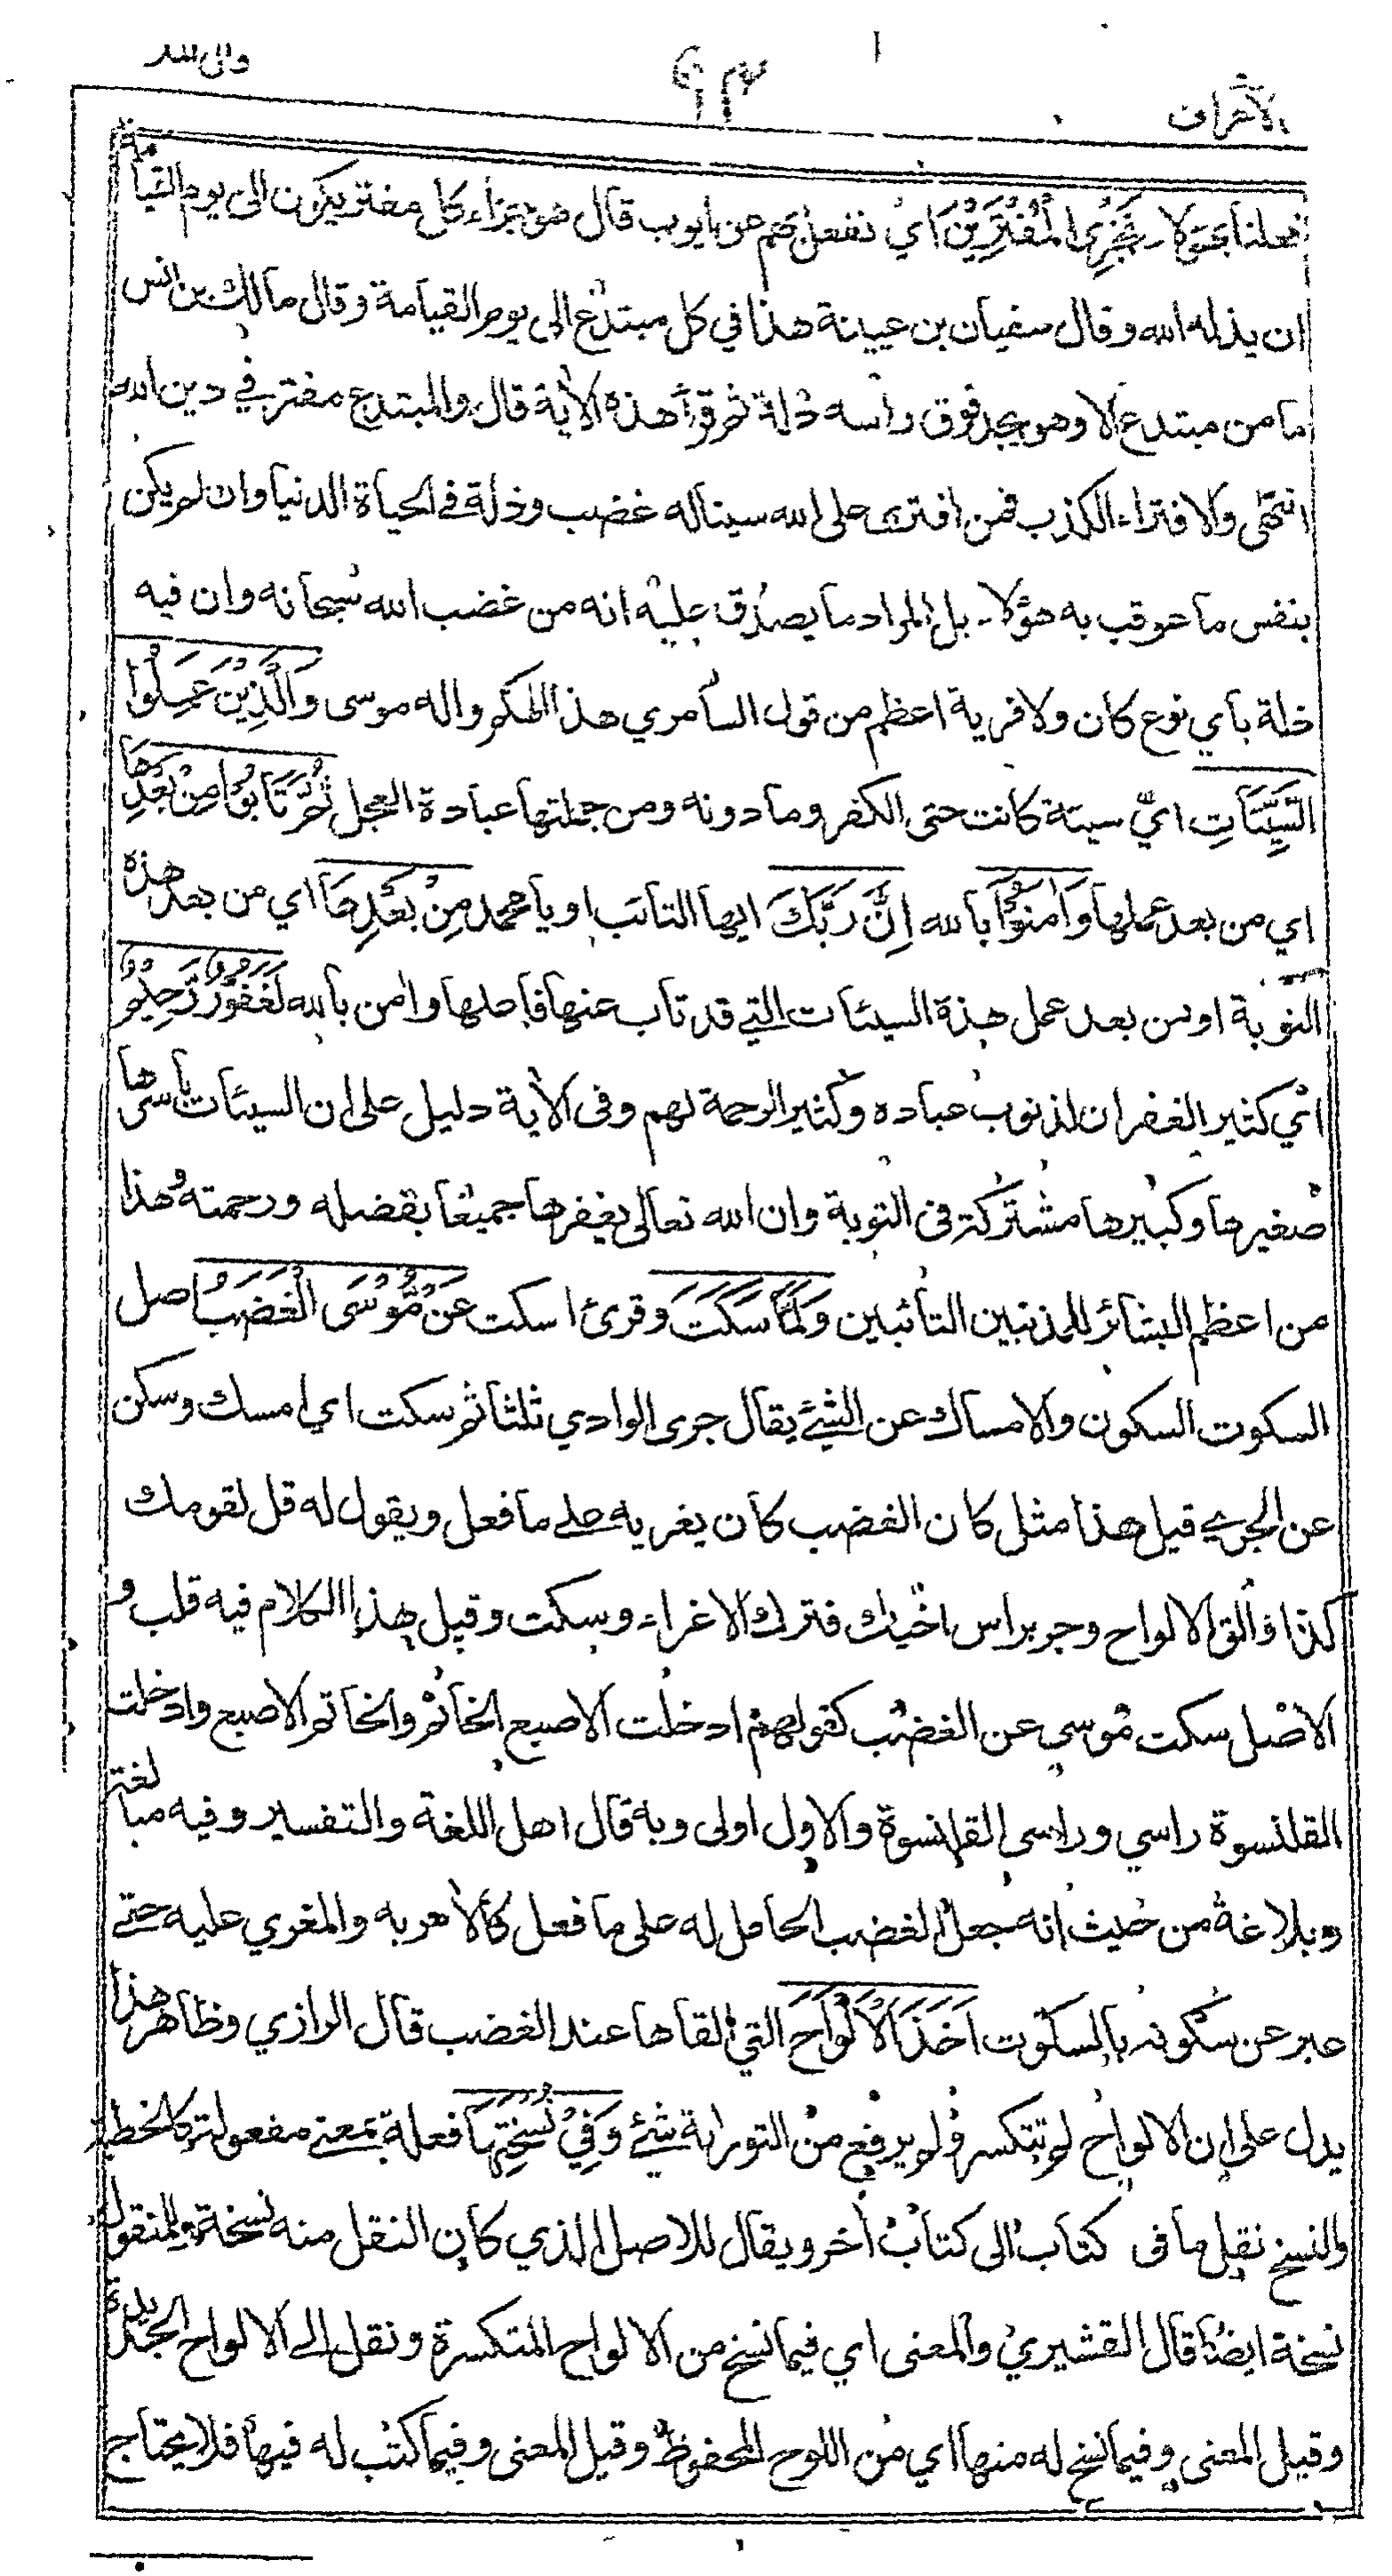 الاعراف ٦٤ قال الملأ
فعلنا بهؤلاء نَجْزِي الْمُفْتَرِيْنَ اي نفعل بهم عن ايوب قال هو جزاء كل مفتر يكون الى يوم القيامة
ان يذله الله وقال سفيان بن عيينة هذا في كل مبتدع الى يوم القيامة وقال مالك بن انس
ما من مبتدع الا وهو يجد فوق راسه ذلة ثم قرأ هذه الأية قال والمبتدع مفتر في دين الله
انتهى والافتراء الكذب فمن افترى على الله سيناله غضب وذلة في الحياة الدنيا وان لم يكن
بنفس ما عوقب به هؤلاء بل المراد ما يصدق عليه انه من غضب الله سبحانه وان فيه
ذلة بأي نوع كان ولا فرية اعظم من قول السامري هذا الهكم واله موسى وَالَّذِيْنَ عَمِلُوا
السَّيِّئَاتِ اي سيئة كانت حتى الكفر وما دونه ومن جملتها عبادة العجل ثُمَّ تَابُوْا مِنْ بَعْدِهَا
اي من بعد عملها وَاٰمَنُوْٓا بالله اِنَّ رَبَّكَ ايها التائب او يا محمد مِنْ بَعْدِهَا اي من بعد هذه
التوبة او من بعد عمل هذه السيئات التي قد تاب عنها فاعلها وامن بالله لَغَفُوْرٌ رَّحِيْمٌ
اي كثير الغفران لذنوب عباده وكثير الرحمة لهم وفي الأية دليل على ان السيئات باسرها
صغيرها وكبيرها مشتركة في التوبة وان الله تعالى يغفرها جميعا بفضله ورحمته وهذا
من اعظم البشائر للمذنبين التائبين وَلَمَّا سَكَتَ وقرئ اسكت عَنْ مُّوْسَى الْغَضَبُ اصل
السكوت السكون والامساك عن الشيء يقال جرى الوادي ثلثا ثم سكت اي امسك وسكن
عن الجري قيل هذا مثل كان الغضب كان يغريه على ما فعل ويقول له قل لقومك
كذا والق الالواح وجر براس اخيك فترك الاغراء وسكت وقيل هذا الكلام فيه قلب و
الاصل سكت موسى عن الغضب كقولهم ادخلت الاصبع الخاتم والخاتم الاصبع وادخلت
القلنسوة راسي وراسي القلنسوة والاول اولى وبه قال اهل اللغة والتفسير وفيه مبالغة
وبلاغة من حيث انه جعل الغضب الحامل له على ما فعل كالأمر به والمغري عليه حتى
عبر عن سكونه بالسكوت اَخَذَ الْاَلْوَاحَ التي القاها عند الغضب قال الرازي وظاهر هذا
يدل على ان الالواح لم تتكسر ولم يرفع من التوراة شيء وَفِيْ نُسْخَتِهَا فعلة بمعنى مفعولة كالخطبة
والنسخ نقل ما في كتاب الى كتاب أخر ويقال للاصل الذي كان النقل منه نسخة وللمنقول
نسخة ايضا قال القشيري والمعنى اي فيما نسخ من الالواح المتكسرة ونقل الى الالواح الجديدة
وقيل المعنى وفيما نسخ له منها اي من اللوح المحفوظ وقيل المعنى وفيما كتب له فيها فلا يحتاج